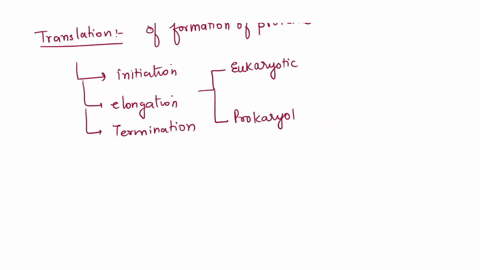 Translation:- of formation of
initiation
Eukaryotic
elongation
Prokaryot
Termination